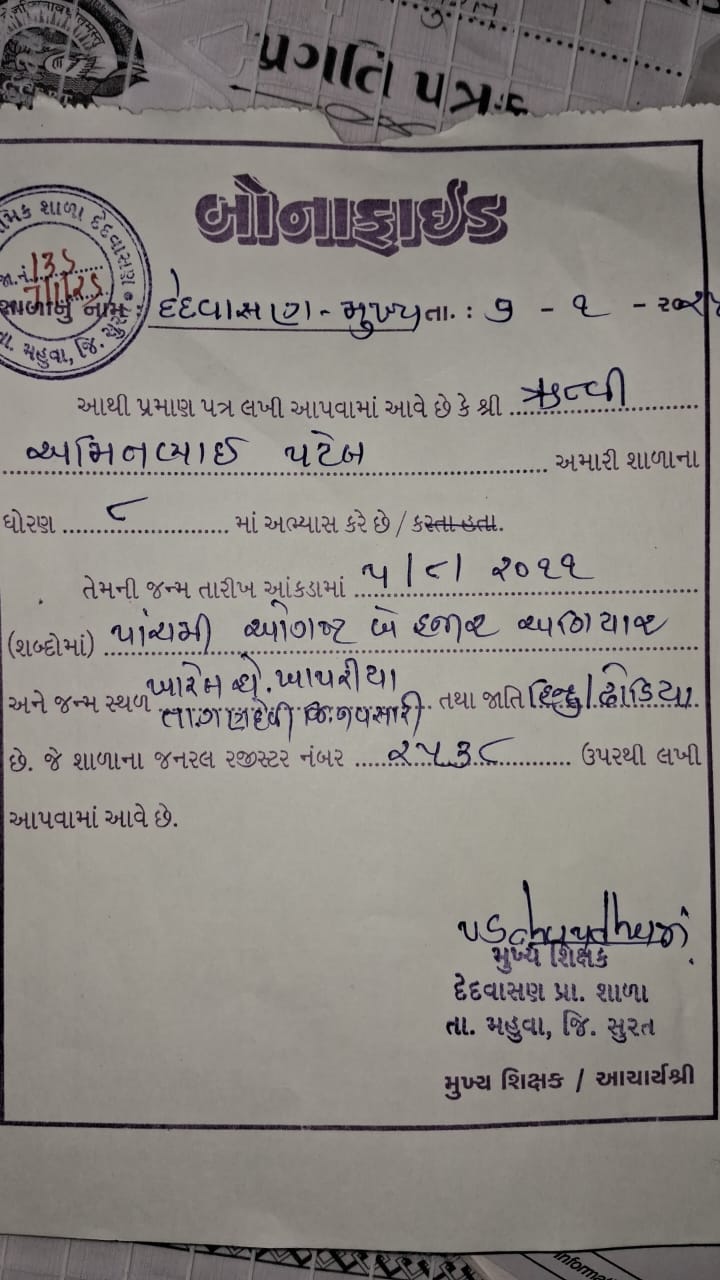 પ્રગતિ પત્રક
બોનાફાઈડ
મિક શાળા દેદવાસણ
જા.નં. 135
7/1/25
તા. મહુવા, જિ. સુરત
શાળાનું નામ દેદવાસણ - મુખ્ય તા. : ૭ - ૧ -
આથી પ્રમાણ પત્ર લખી આપવામાં આવે છે કે શ્રી ઋત્વી
અમિનભાઈ પટેલ અમારી શાળાના
ધોરણ ૮ માં અભ્યાસ કરે છે / કરતા હતા.
તેમની જન્મ તારીખ આંકડામાં ૫/૮/૨૦૧૧
(શબ્દોમાં) પાંચમી ઓગષ્ટ બે હજાર અગિયાર
અને જન્મ સ્થળ ખારેલ ખાપરીયા
તા.ગણદેવી જિ.નવસારી તથા જાતિ હિન્દુ/ઢોડિયા
છે. જે શાળાના જનરલ રજીસ્ટર નંબર ૨૫૩૮ ઉપરથી લખી
આપવામાં આવે છે.
મુખ્ય શિક્ષક
દેદવાસણ પ્રા. શાળા
તા. મહુવા, જિ. સુરત
મુખ્ય શિક્ષક / આચાર્યશ્રી